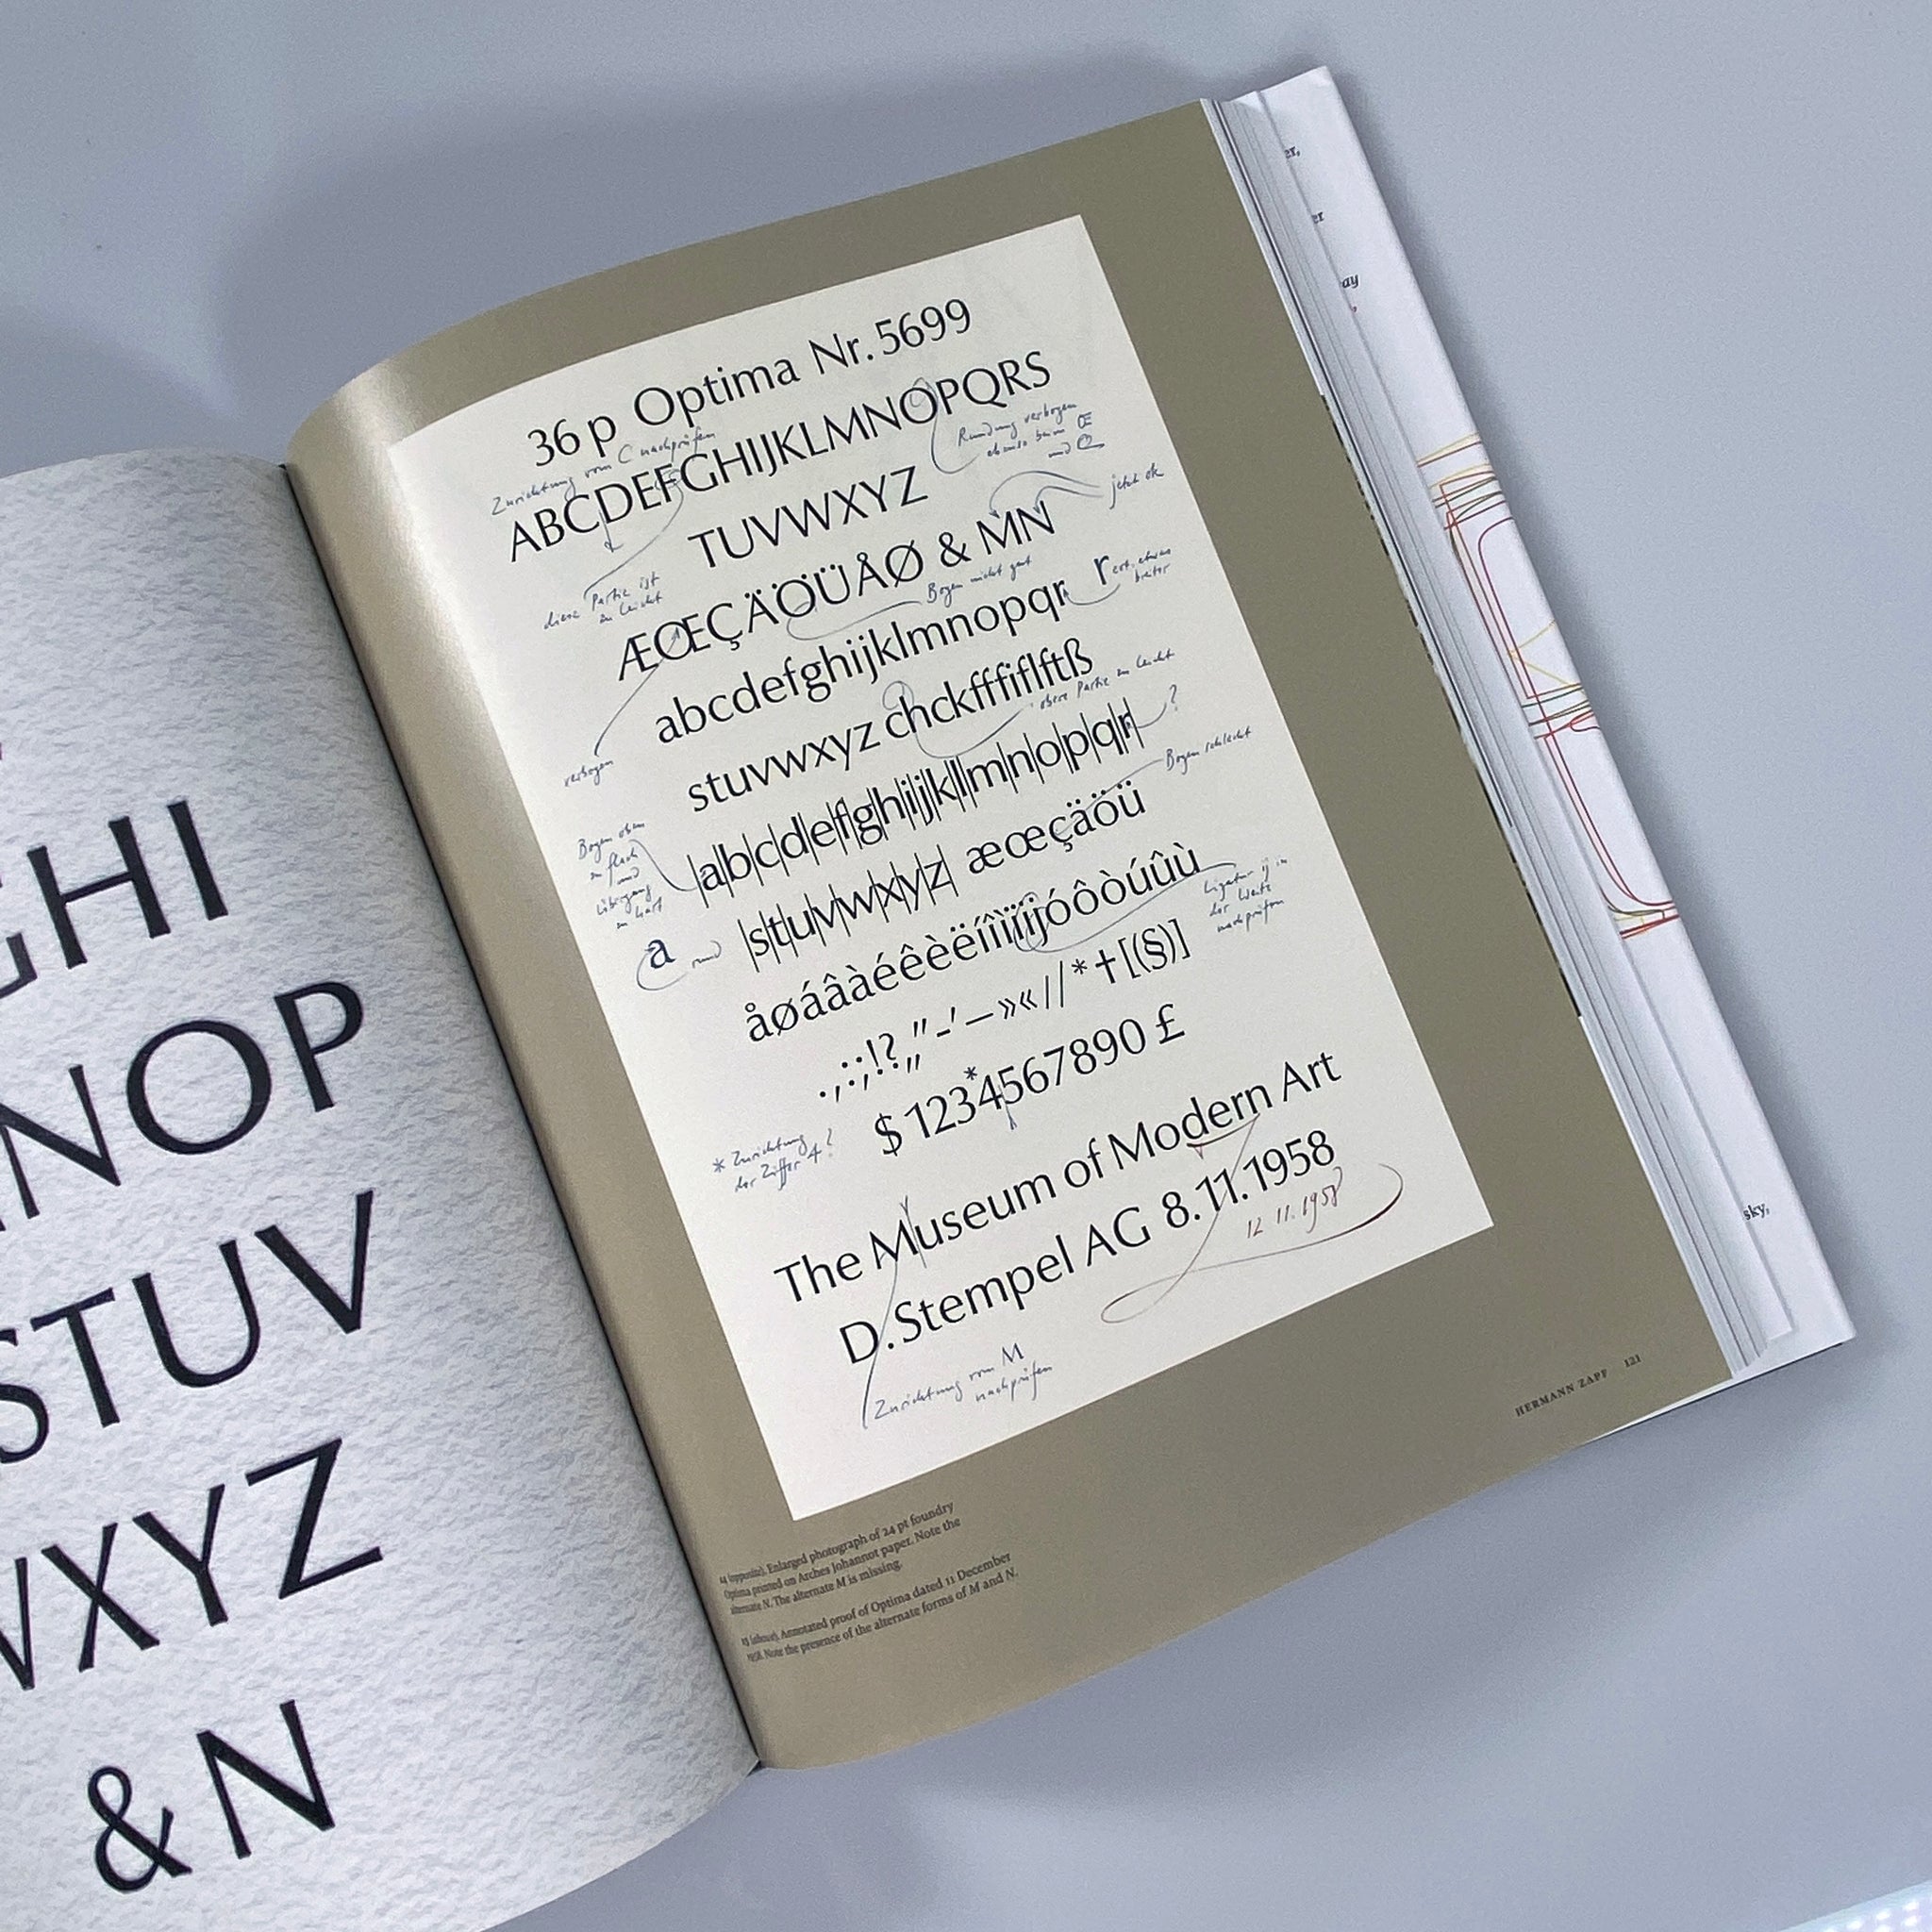 GHI
NOP
STUV
VXYZ
& N
36 p Optima Nr. 5699
Zurichtung vom C nachprüfen
ABCDEFGHIJKLMNOPQRS
Rundung verbogen
ebenso beim Œ
und Q
TUVWXYZ
jetzt ok
diese Partie ist
zu leicht
ÆŒÇÄÖÜÅØ & MN
Bogen nicht gut
abcdefghijklmnopqr
r evt. etwas
breiter
stuvwxyz chckfffiflftß
obere Partie zu leicht
verbogen
|a|b|c|d|e|f|g|h|i|j|k|l|m|n|o|p|q|r|
?
Bogen schlecht
Bogen oben
zu flach
und
Übergang
zu hart
|s|t|u|v|w|x|y|z| æœçäöü
a und
åøáâàéêèëíîìïijóôòúûù
Ligatur ij in
der Weite
nachprüfen
.,:;!?„"-'—»«//*†[(§)]
*
$1234567890£
* Zurichtung
der Ziffer 4?
The Museum of Modern Art
D. Stempel AG 8.11.1958
12.11.1958
Zurichtung vom M
nachprüfen
14 (opposite). Enlarged photograph of 24 pt foundry
Optima printed on Arches Johannot paper. Note the
alternate N. The alternate M is missing.
15 (above). Annotated proof of Optima dated 11 December
1958. Note the presence of the alternate forms of M and N.
HERMANN ZAPF 121
er,
er
ay
sky,